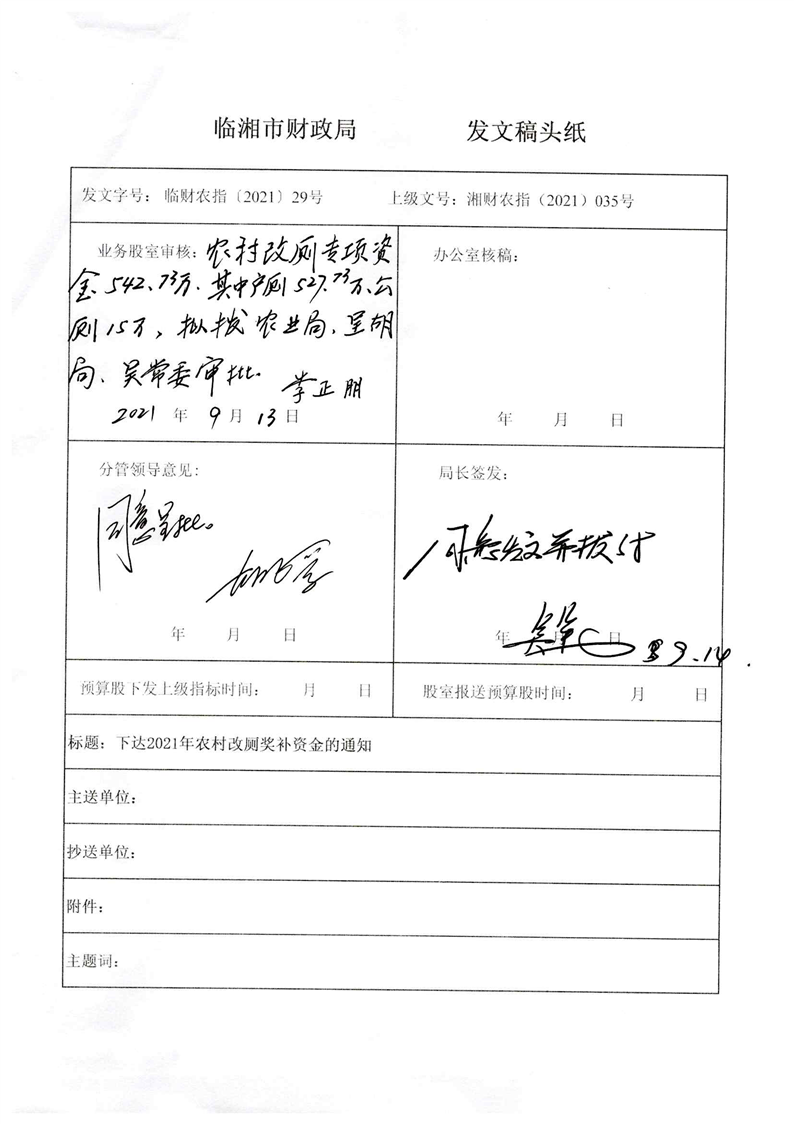 临湘市财政局 发文稿头纸
发文字号：临财农指〔2021〕29号 上级文号：湘财农指（2021）035号
业务股室审核：农村改厕专项资
金542.73万.其中户厕527.73万、公
厕15万，拟拨农业局、呈胡
局、吴常委审批。 李正朋
2021 年 9 月 13 日
办公室核稿：
年 月 日
分管领导意见：
同意呈批。
年 月 日
局长签发：
同意发文并拨付
年 月 日 9.14
预算股下发上级指标时间： 月 日
股室报送预算股时间： 月 日
标题：下达2021年农村改厕奖补资金的通知
主送单位：
抄送单位：
附件：
主题词：